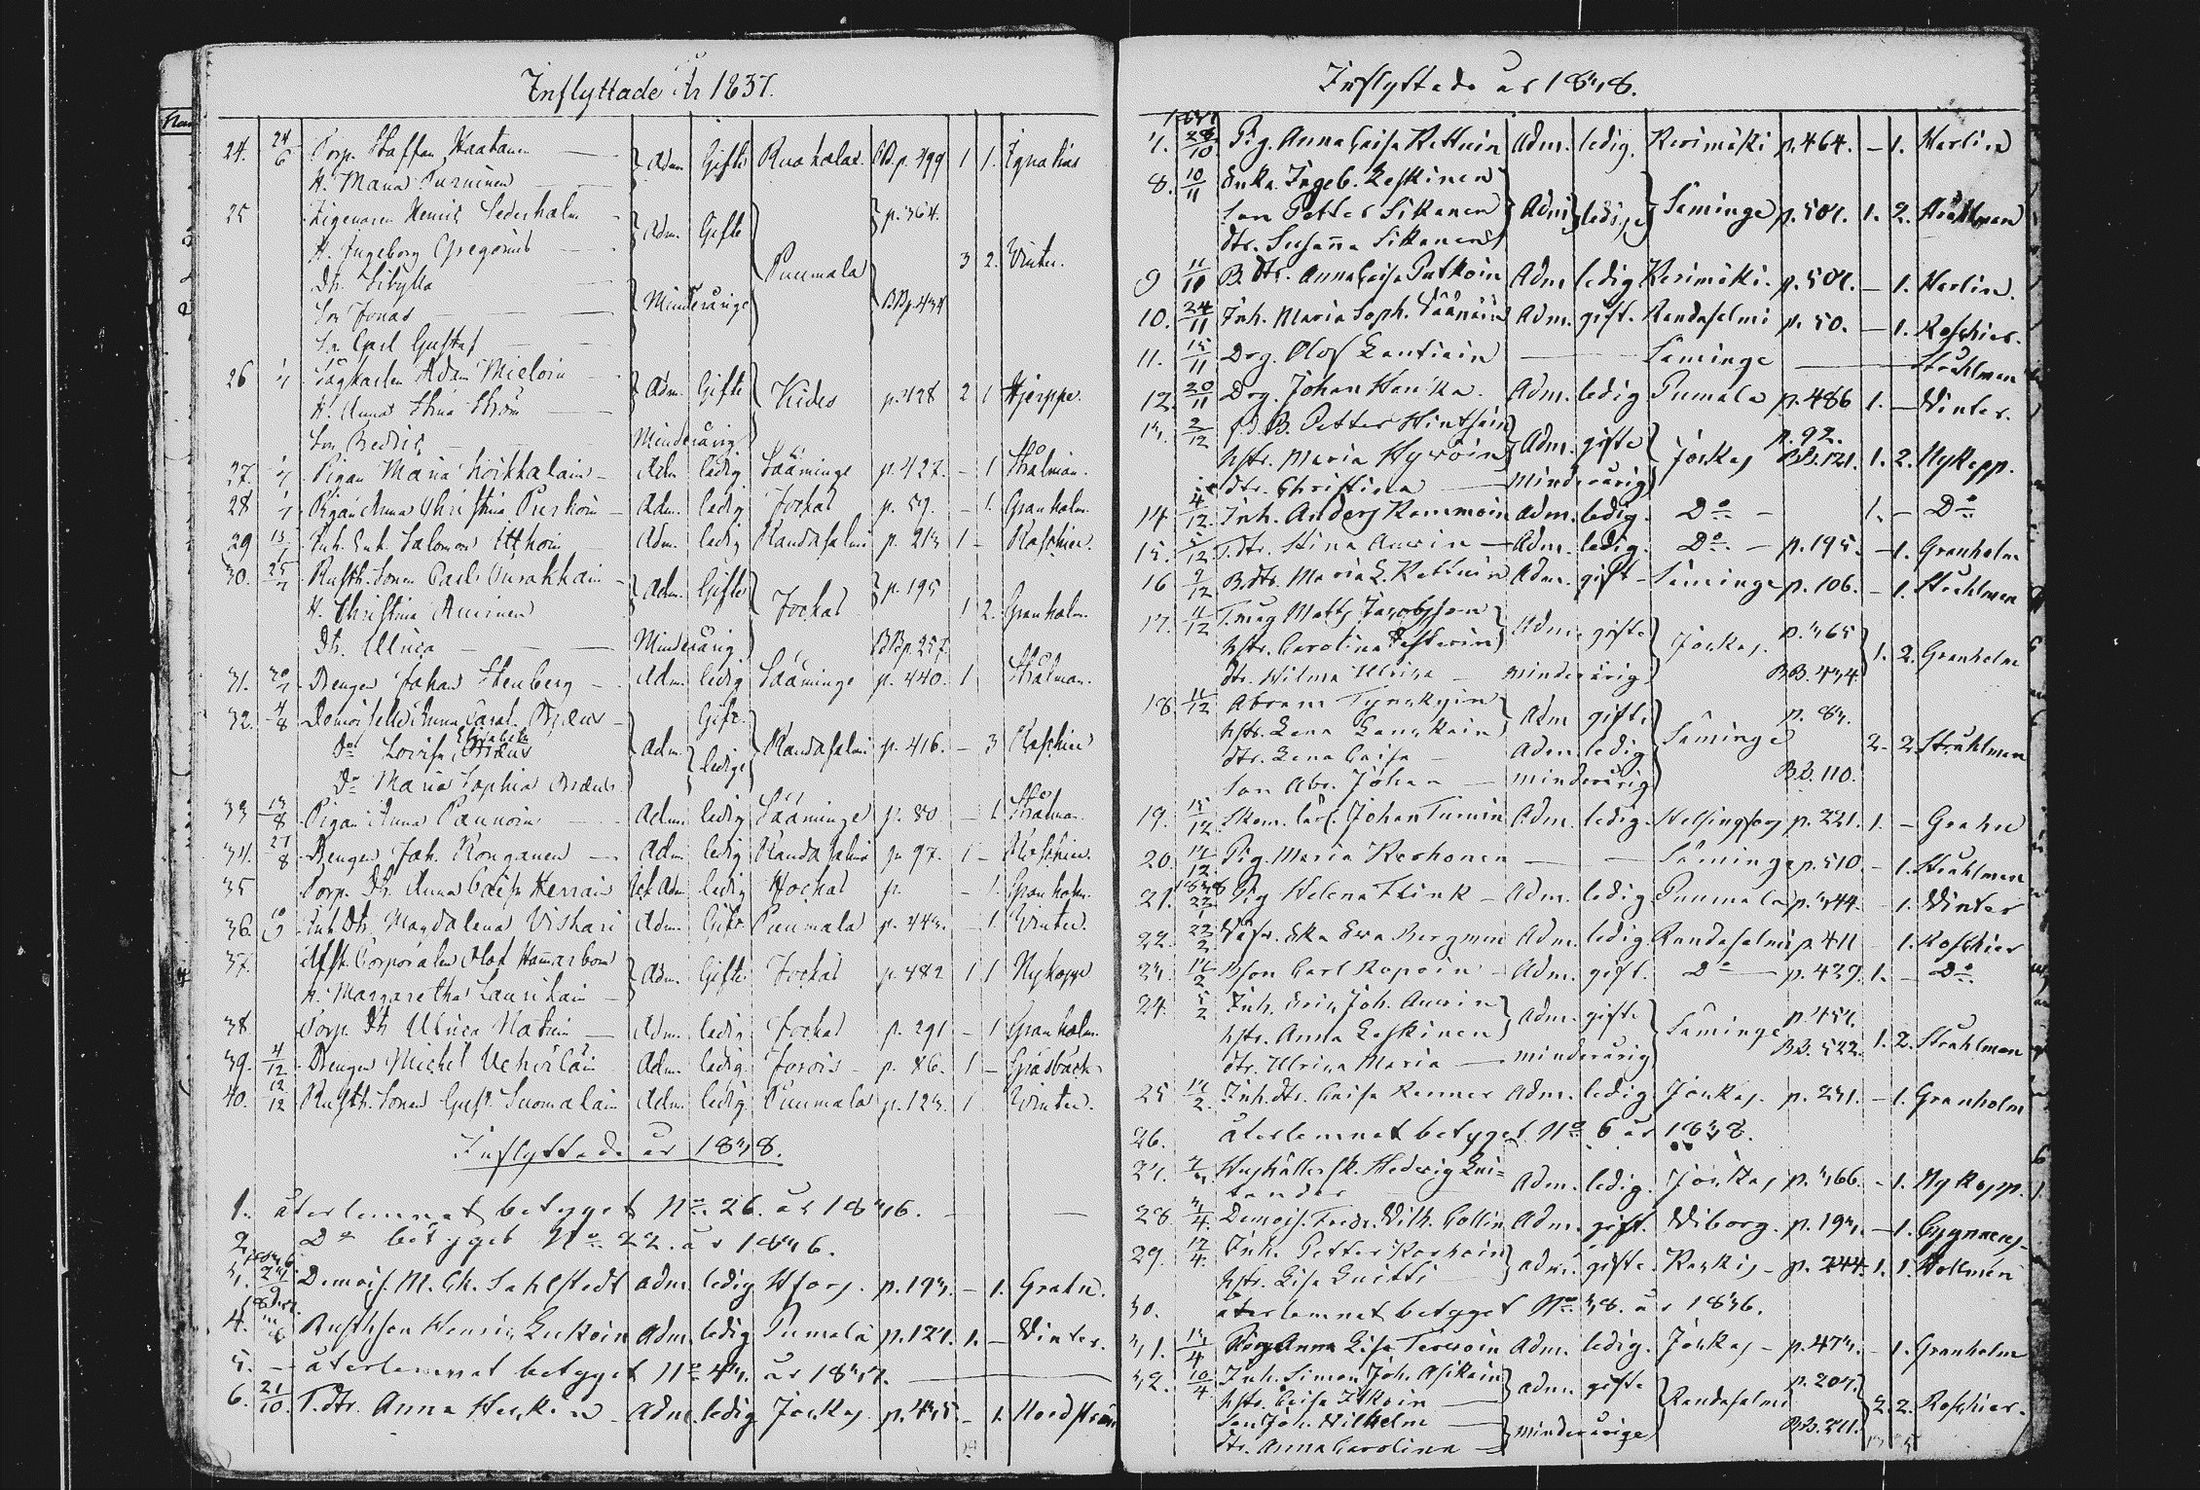 Inflyttade År 1837.
24. 24/6 Torp. Staffan Kaatanen — Adm. Gifte Ruokolax BB. p. 499 1 1. Ignatius
H. Maria Turuinen
25 Zigenaren Henric Sederholm Adm. Gifte p. 364.
H. Ingeborg Gregorius — Puumala 3 2. Winter.
Dr. Sibylla
Son Jonas — Minderårige BB. p. 434
Sn Carl Gustaf
26 Sågkarlen Adam Mieloin Adm. Gifte Kides p. 428 2 1 Hjerppe.
H. Anna Stina Ström
Son Fredric — Minderårig
27. Pigan Maria Loikkalain Adm ledig Sääminge p. 427. – 1 Strålman.
28 Pigan Anna Christina Purhoin Adm. ledig Jockas p. 57. – 1. Granholm.
29 Inh. Enk. Salomon Itkoin Adm. ledig Randasalmi p. 213 1 – Roschier.
30. 25/7 Rusth. Sonen Carl Adm. Gifte Jockas p. 195 1 2. Granholm.
H. Christina Auvinen
Dr. Ulrica — Minderårig. BB. p. 257
31. 20/7 Drengen Johan Stenberg Adm. ledig Sääminge p. 440. 1 Strålman.
32. 4/8 Demoiselle Anna Carol. Gift. Adm. Randasalmi p. 416. – 3 Roschier
Do Lovisa Elisabeth ledige
Do Maria Sophia
33 13/8 Pigan Anna Paunoin Adm. ledig Sääminge p. 80 – 1 Strålman.
34. 27/8 Drengen Joh. Konganen Adm. ledig Randasalmi p. 97. 1 – Roschier.
35 Torp. Dr. Anna Caisa Herrain Adm ledig Jockas p. – 1. Granholm.
36. 10/9 Inh Dr. Magdalena Vishari Adm. Gift Puumala p. 443. – 1. Winter.
37. Afsk. Corporalen Olof Hammarbom Adm. Gifte Jockas p. 482 1 1 Nykopp
H. Margaretha Laurikain
38. Torp. Dr. Ulrica Natuin Adm. ledig Jockas p. 291 – 1 Granholm.
39. 4/12 Drengen Michel Vehviläin Adm. ledig Jorois p. 86. 1 – Gråsbäck
40. 12/12 Rusth. Sonen Gust. Suomalain Adm. ledig Puumala p. 123. 1 Winter.
Inflyttade år 1838.
1. återlemnat betyget No. 26. år 1836.
2. Do betyget No. 22. år 1836.
3. Demois. M. Ch. Sahlstedt adm. ledig Hfors. p. 193. – 1. Grahn.
4. Rusthson Henric Luikoin adm. ledig Pumala p. 121. 1. – Winter.
5. – återlemnat betyget No 43. år 1837.
6. 21/10. T. dtr. Anna Heiskin adm. ledig Jockas p. 435 – 1. Nordström
Inflyttade år 1838.
7. 28/10 Pig. Anna Caisa Kettuin Adm. ledig. Kerimäki p. 464. – 1. Herlin
8. 10/11 Enka. Ingeb. Leskinen
Son Petter Sikanen Adm. ledige Säminge p. 507. 1. 2. Stråhlman
dtr. Susanna Sikanen
9 11/11 B. dtr. Anna Caisa Putkoin Adm. ledig Kerimäki. p. 507. – 1. Herlin.
10. 24/11 Inh. Maria Soph. Väänäin Adm. gift. Randasalmi p. 50. – 1. Roschier.
11. 15/11 Drg. Olof Lautiain — Säminge — Stråhlman
12. 20/11 Drg. Johan Hanka. Adm. ledig Pumala p. 486 1. – Winter.
13. 2/12 B. Petter Hintsain Adm. gifte Jockas p. 92.
hstr. Maria Hyvöin BB. 121. 1. 2. Nykopp.
dtr. Christina — minderårig
14 4/12. Inh. Anders Kammoin adm. ledig. Do – 1. – Do
15. 5/12 T. dtr. Stina Auvin — Adm. ledig. Do. – p. 195. – 1. Granholm
16 9/12 B. dtr. Maria L. Kettuin Adm. gift – Säminge p. 106. – 1. Stråhlman
17. 11/12 T. måg Matts Jacobsson Adm. gifte Jockas. p. 365
hstr. Carolina Pesterin 1. 2. Granholm
dtr. Wilma Ulrica — minderårig BB. 434.
18. 11/12 Abram Tynskyin Adm gifte p. 83.
hstr. Lena Lauskain Säminge 2. 2. Stråhlman
dtr. Lena Caisa – Adm. ledig
son Abr. Johan — minderårig BB. 110.
19. 15/12 Skom. lärl. Johan Turuin Adm. ledig. Helsingfors p. 221. 1. – Grahn
20. Pig. Maria Korhonen — Säminge p. 510. – 1. Stråhlman
21. 1838 22/1 Pig Helena Flink – Adm. ledig Puumala p. 344. – 1. Winter
22. 22/2. Eka Eva Bergman Adm. ledig. Randasalmi p. 411 – 1. Roschier
23. 14/2 Bson Carl Kopoin – Adm. gift. Do — p. 439. 1. – Do.
24. 5/2 Inh. Eric Joh. Auvin Adm. gifte Säminge p. 457.
hstr. Anna Leskinen BB. 522. 1. 2. Stråhlman
dtr. Ulrica Maria — minderårig
25 14/2. Inh. dtr. Caisa Renner Adm. ledig. Jockas. p. 231. – 1. Granholm
26. återlemnat betyget No 6 år 1838.
27. Hushållersk. Hedvig Qvi-
tander Adm. ledig. Jockas p. 366. – 1. Nykopp.
28. Demois. Fredr. Wilh. Collin Adm. gift. Wiborg. p. 193. – 1. Cygnaeus
29. 12/4. Inh. Petter Korhoin adm. gifte. p. 244. 1. 1. Hollmén
hstr. Lisa Quitti
30. återlemnat betyget No 38. år 1836.
31. 14/4 Pig Anna Lisa Tervoin Adm. ledig. Jockas – p. 473. – 1. Granholm
32. 10/4 Inh. Simon Joh. Asikain adm. gifte Randasalmi p. 207.
hstr. Caisa Itkoin 2. 2. Roschier.
Son Joh. Wilhelm — minderårige BB. 211.
dtr. Anna Carolina